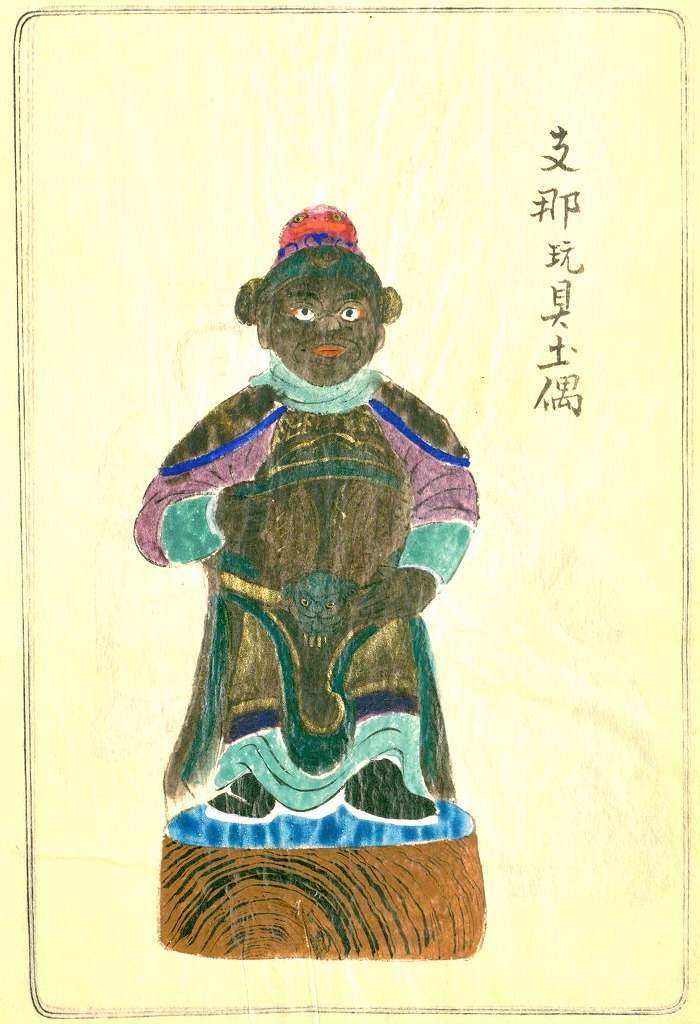 支那玩具土偶